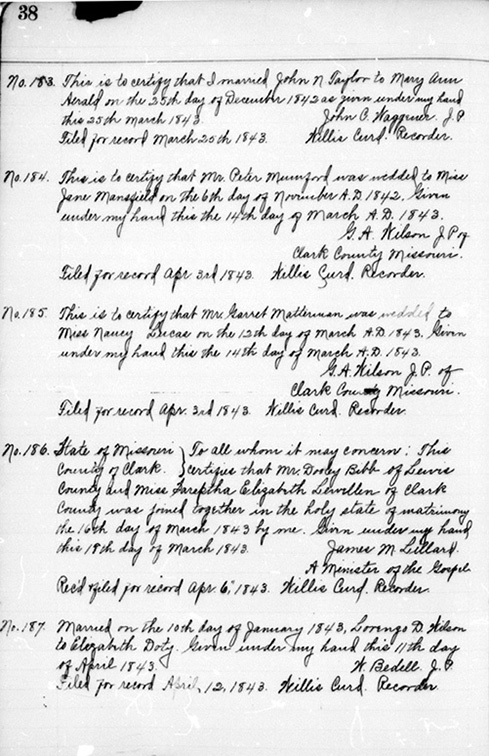 38
No. 183. This is to certify that I married John N Taylor to Mary Ann
Herald on the 25th day of December 1842 as givn under my hand
this 25th March 1843. John C. Waggener. J.P
Filed for record March 25th 1843. Willis Curd. Recorder.
No. 184. This is to certify that Mr. Peter Mumford was wedded to Miss
Jane Mansfield on the 6th day of November A.D. 1842. Givin
under my hand this the 14th day of March A.D. 1843.
G. A. Wilson J P of
Clark County Missouri.
Filed for record Apr. 3rd 1843. Willis Curd. Recorder.
No. 185. This is to certify that Mr. Garret Matterman was wedded to
Miss Nancy Lucas on the 12th day of March A.D. 1843. Givin
under my hand this the 14th day of March A.D. 1843.
G. A. Wilson J. P. of
Clark County Missouri.
Filed for record Apr. 3rd 1843. Willis Curd. Recorder.
No. 186. State of Missouri } To all whom it may concern: This
County of Clark. } certifies that Mr. Dooly Bibb of Lewis
County and Miss Fareptha Elizabeth Lewellen of Clark
County was joined together in the holy state of matrimony
the 16th day of March 1843 by me. Givin under my hand
this 18th day of March 1843. James M Lillard.
A Minister of the Gospel
Rec'd & filed for record Apr. 6", 1843. Willis Curd. Recorder.
No. 187. Married on the 10th day of January 1843, Lorenzo D. Wilson
to Elizabeth Doty. Given under my hand this 11th day
of April 1843. W. Bedell. J. P.
Filed for record April, 12, 1843. Willis Curd. Recorder.